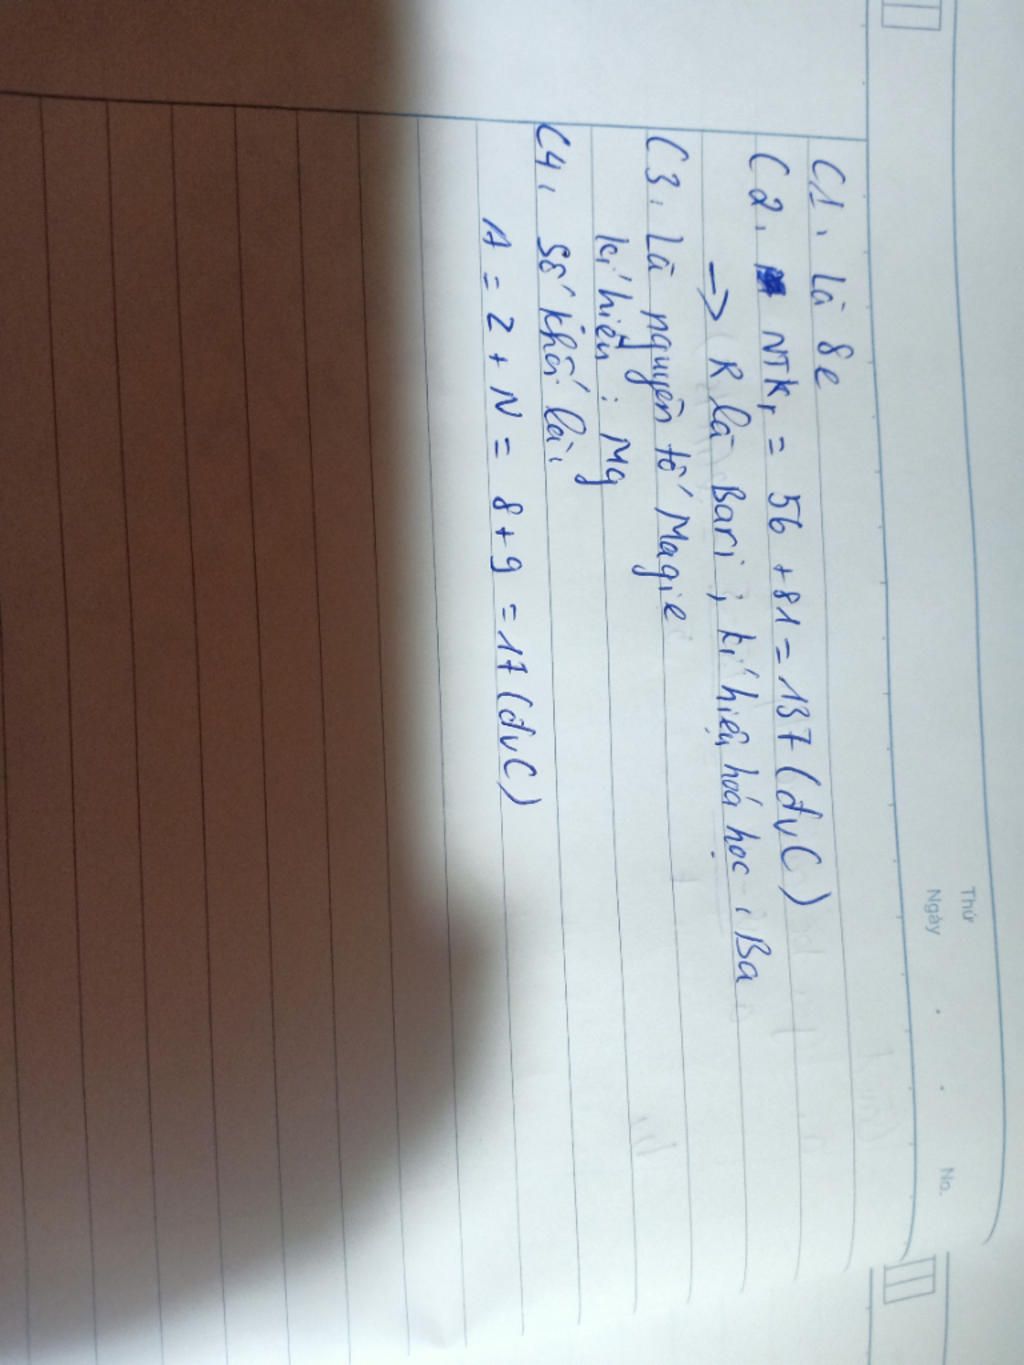 Thứ
Ngày . . No.
C1. Là 8e
C2. NTKr = 56 + 81 = 137 (đvC)
→ R là Bari ; kí hiệu hoá học : Ba
C3. Là nguyên tố Magie
kí hiệu : Mg
C4. Số khối là:
A = 2 + N = 8 + 9 = 17 (đvC)